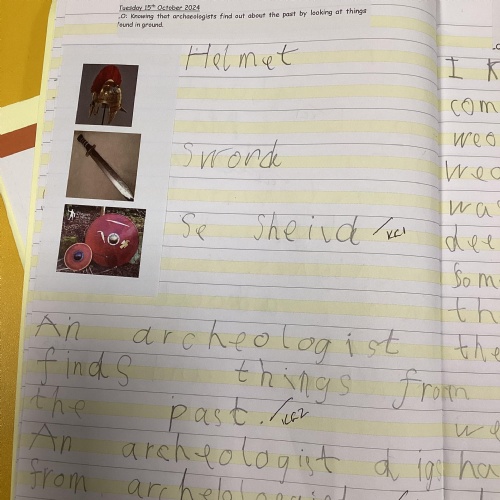 Tuesday 15th October 2024
.O: Knowing that archaeologists find out about the past by looking at things
found in ground.
Helmet
Sword
Se Sheild
KC1
An archeologist
finds things from
the past.
KC2
An archeologist digs
from
I
com
wea
was
dee
som
th
the
we
ha